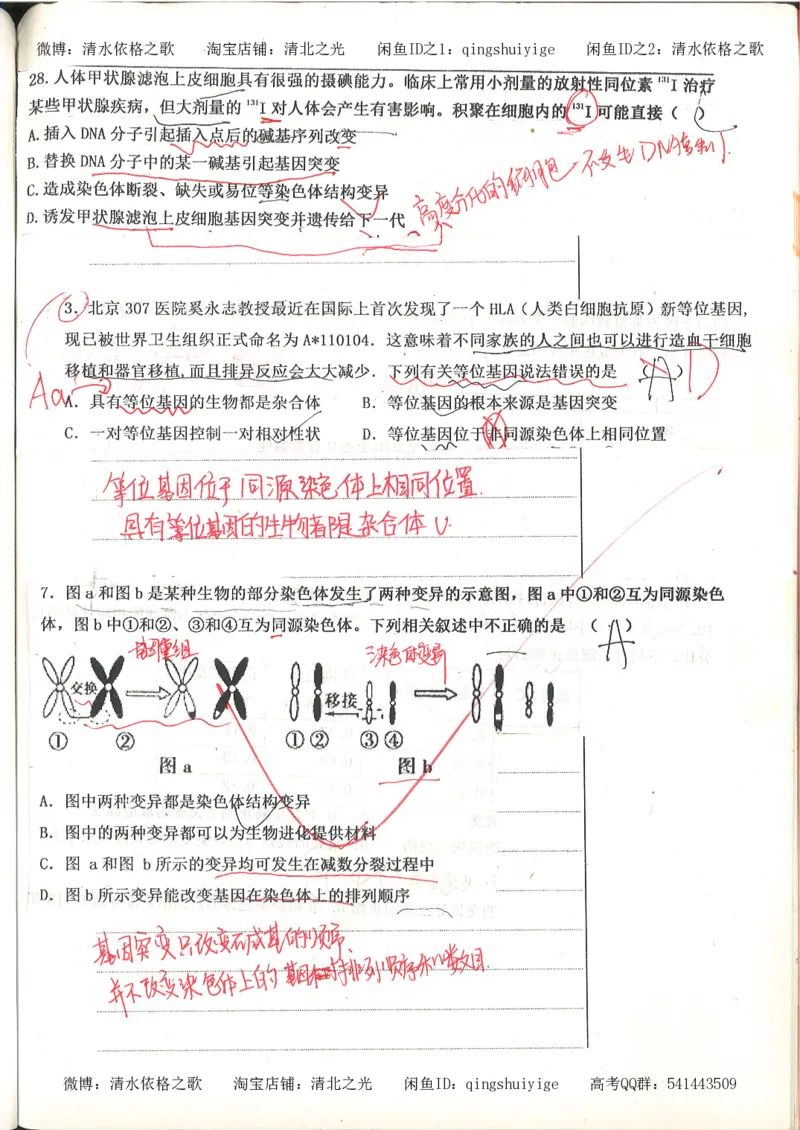 微博：清水依格之歌 淘宝店铺：清北之光 闲鱼ID之1：qingshuiyige 闲鱼ID之2：清水依格之歌
28.人体甲状腺滤泡上皮细胞具有很强的摄碘能力。临床上常用小剂量的放射性同位素 ¹³¹I 治疗
某些甲状腺疾病，但大剂量的 ¹³¹I 对人体会产生有害影响。积聚在细胞内的 ¹³¹I 可能直接（ ）
A.插入 DNA 分子引起插入点后的碱基序列改变
B.替换 DNA 分子中的某一碱基引起基因突变
C.造成染色体断裂、缺失或易位等染色体结构变异
D.诱发甲状腺滤泡上皮细胞基因突变并遗传给下一代
高度分化的细胞 不发生DNA复制
3．北京 307 医院奚永志教授最近在国际上首次发现了一个 HLA（人类白细胞抗原）新等位基因，
现已被世界卫生组织正式命名为 A*110104．这意味着不同家族的人之间也可以进行造血干细胞
移植和器官移植,而且排异反应会大大减少．下列有关等位基因说法错误的是 （A） D
Aa
A．具有等位基因的生物都是杂合体 B．等位基因的根本来源是基因突变
C．一对等位基因控制一对相对性状 D．等位基因位于非同源染色体上相同位置
等位基因位于同源染色体上相同位置.
具有等位基因的生物都是杂合体
7．图 a 和图 b 是某种生物的部分染色体发生了两种变异的示意图，图 a 中①和②互为同源染色
体，图 b 中①和②、③和④互为同源染色体。下列相关叙述中不正确的是 （A）
基因重组 染色体变异
交换 移接
① ② ①② ③④
图 a 图 b
A．图中两种变异都是染色体结构变异
B．图中的两种变异都可以为生物进化提供材料
C．图 a 和图 b 所示的变异均可发生在减数分裂过程中
D．图 b 所示变异能改变基因在染色体上的排列顺序
基因突变只改变碱基的顺序、
并不改变染色体上的排列顺序和数目.
微博：清水依格之歌 淘宝店铺：清北之光 闲鱼ID：qingshuiyige 高考QQ群：541443509